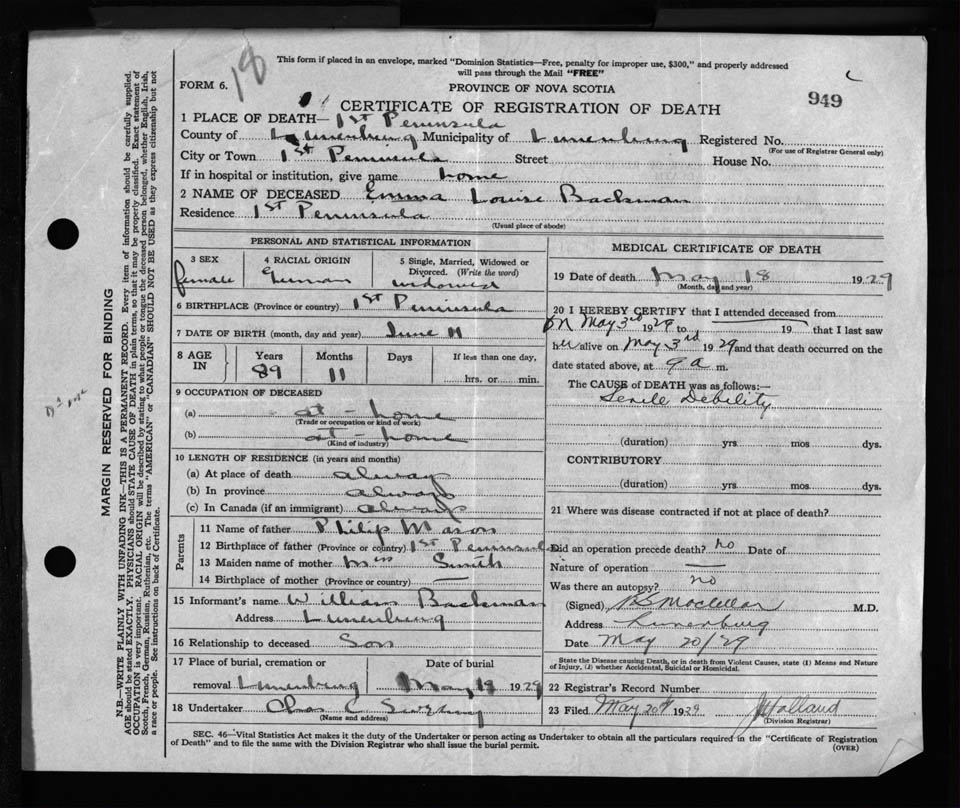 This form if placed in an envelope, marked "Dominion Statistics—Free, penalty for improper use, $300," and properly addressed
will pass through the Mail "FREE"
18
FORM 6.
PROVINCE OF NOVA SCOTIA
949
CERTIFICATE OF REGISTRATION OF DEATH
1 PLACE OF DEATH— 1st Peninsula
County of Lunenburg Municipality of Lunenburg Registered No.
(For use of Registrar General only)
City or Town 1st Peninsula Street House No.
If in hospital or institution, give name home
2 NAME OF DECEASED Emma Louise Backman
Residence 1st Peninsula
(Usual place of abode)
PERSONAL AND STATISTICAL INFORMATION
3 SEX
female
4 RACIAL ORIGIN
German
5 Single, Married, Widowed or
Divorced. (Write the word)
widowed
6 BIRTHPLACE (Province or country) 1st Peninsula
7 DATE OF BIRTH (month, day and year) June 11
8 AGE
IN
Years
89
Months
11
Days
If less than one day,
hrs. or min.
9 OCCUPATION OF DECEASED
(a) at - home
(Trade or occupation or kind of work)
(b) at - home
(Kind of industry)
10 LENGTH OF RESIDENCE (in years and months)
(a) At place of death always
(b) In province always
(c) In Canada (if an immigrant) always
Parents
11 Name of father Philip Mason
12 Birthplace of father (Province or country) 1st Peninsula
13 Maiden name of mother Miss Smith
14 Birthplace of mother (Province or country) —
15 Informant's name William Backman
Address Lunenburg
16 Relationship to deceased Son
17 Place of burial, cremation or Date of burial
removal Lunenburg May 19 1929
18 Undertaker Chas C
(Name and address)
MEDICAL CERTIFICATE OF DEATH
19 Date of death May 18 1929
(Month, day and year)
20 I HEREBY CERTIFY that I attended deceased from
on May 3rd 1929 to 19 that I last saw
her alive on May 3rd 1929 and that death occurred on the
date stated above, at 9 a m.
The CAUSE of DEATH was as follows:—
Senile Debility
(duration) yrs. mos dys.
CONTRIBUTORY
(duration) yrs. mos. dys.
21 Where was disease contracted if not at place of death?
Did an operation precede death? no Date of
Nature of operation —
Was there an autopsy? no
(Signed) M.D.
Address Lunenburg
Date May 20/29
State the Disease causing Death, or in death from Violent Causes, state (1) Means and Nature
of Injury, (2) whether Accidental, Suicidal or Homicidal.
22 Registrar's Record Number
23 Filed May 20th 1929 Holland
(Division Registrar)
SEC. 46—Vital Statistics Act makes it the duty of the Undertaker or person acting as Undertaker to obtain all the particulars required in the "Certificate of Registration
of Death" and to file the same with the Division Registrar who shall issue the burial permit.
(OVER)
MARGIN RESERVED FOR BINDING
N.B.—WRITE PLAINLY WITH UNFADING INK—THIS IS A PERMANENT RECORD. Every item of information should be carefully supplied.
AGE should be stated EXACTLY. PHYSICIANS should STATE CAUSE OF DEATH in plain terms, so that it may be properly classified. Exact statement of
OCCUPATION is very important. RACIAL ORIGIN will be described by stating to what people or tongue the deceased person belonged, whether English, Irish,
Scotch, French, German, Russian, Ruthenian, etc. The terms "AMERICAN" or "CANADIAN" SHOULD NOT BE USED as they express citizenship but not
a race or people. See instructions on back of Certificate.